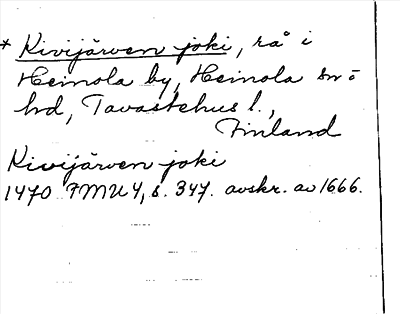 * Kivijärven joki, rå i
Heinola by, Heinola sn o
hd, Tavastehus l.,
Finland
Kivijärven joki
1470 FMU 4, s. 347. avskr. av 1666.